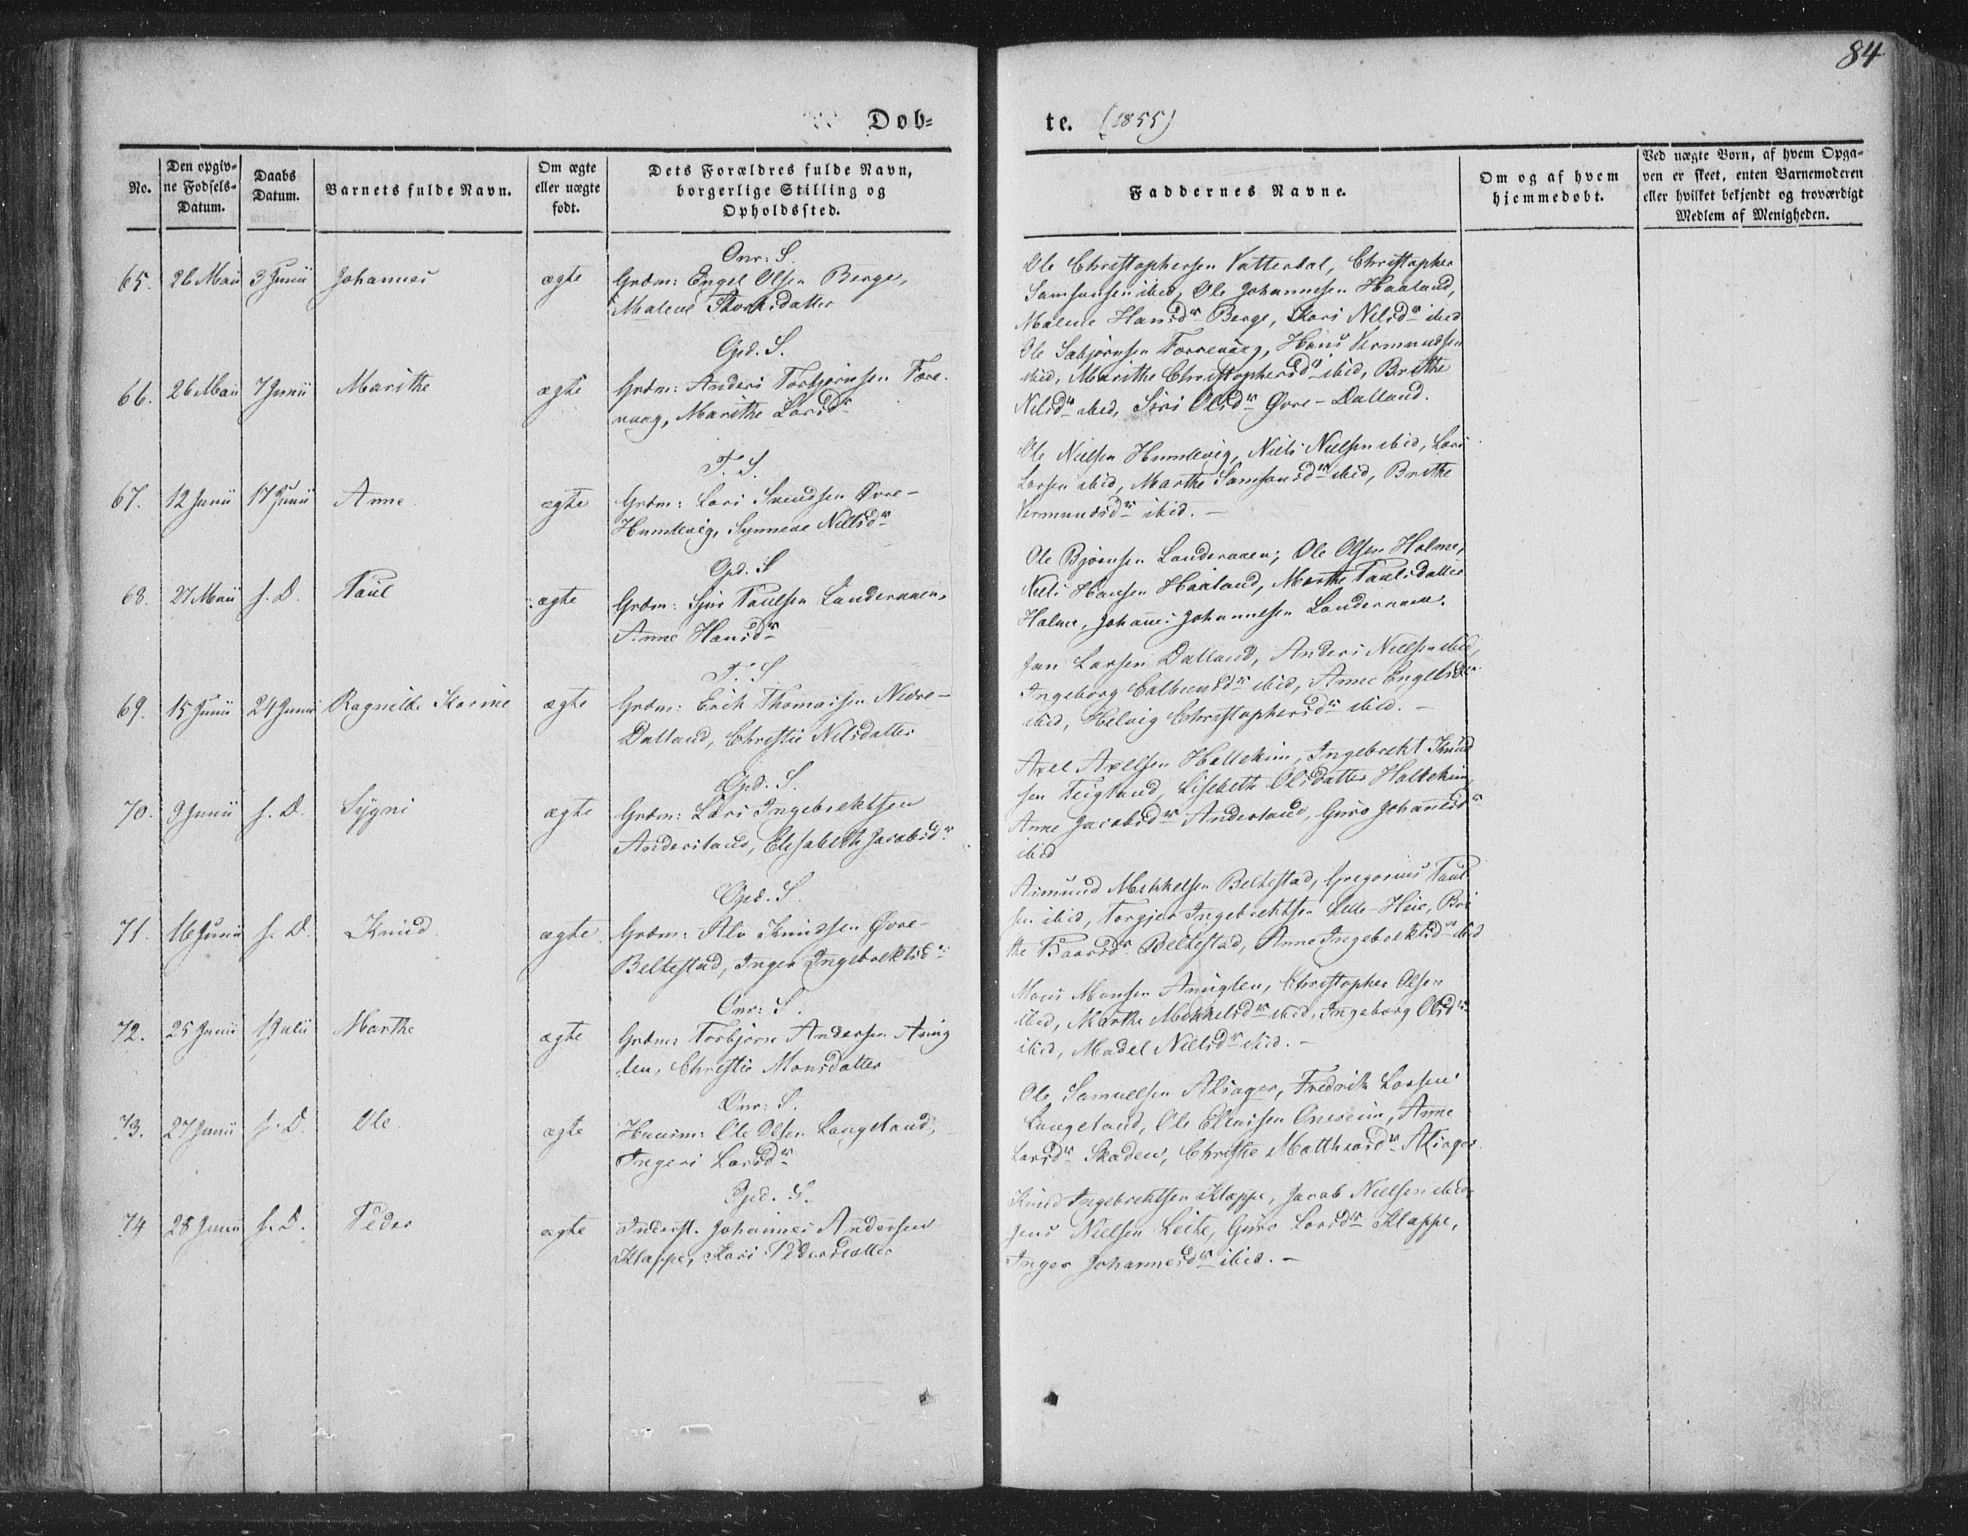 84
Døb=
te. (1855)
No.
Den opgiv=
ne Fødsels=
Datum.
Daabs
Datum.
Barnets fulde Navn.
Om ægte
eller uægte
født.
Dets Forældres fulde Navn,
borgerlige Stilling og
Opholdssted.
Faddernes Navne.
Om og af hvem
hjemmedøbt.
Ved uægte Børn, af hvem Opga=
ven er skeet, enten Barnemoderen
eller hvilket bekjendt og troværdigt
Medlem af Menigheden.
Onr: S.
65. 26 Maii 3 Junii Johannes ægte Grdm: Engel Olsen Berge,
Malene Thorsdatter
Ole Christophersen Vatterdal, Christopher
Samsonsen ibid, Ole Johannesen Haaland,
Malene Hansdr Berge, Kari Nilsdr ibid
Gpd. S.
66. 26 Maii 7 Junii Marithe ægte Grdm: Anders Torbjørnsen Torre-
vaag, Marithe Larsdr
Ole Torrevaag, Hans Vermundsen
ibid, Marithe Christophersdr ibid, Brithe
Nilsdr ibid, Siri Olsdr Øvre-Dalland.
T. S.
67. 12 Junii 17 Junii Anne ægte Grdm: Lars Svendsen Øvre-
Humlevig, Synneve Nilsdr
Ole Nielsen Humlevig, Niels Nielsen ibid, Lars
Larsen ibid, Marthe Samsonsdr ibid, Brithe
Vermundsdr ibid. -
Gpd. S
68. 27 Maii s. D. Paul ægte Grdm: Sjur Paulsen Landeraaen,
Anne Hansdr
Ole Bjørnsen Landeraaen, Ole Olsen Holme,
Niels Hansen Haaland, Marthe Paulsdatter
Holme, Johannes Johannesen Landeraaen.
T. S
69. 15 Junii 24 Junii Ragnilde Karine ægte Grdm: Erik Thomassen Nedre-
Dalland, Christie Nilsdatter
Jan Larsen Dalland, Anders Nielsen ibid,
Ingeborg ibid, Anne Engelsdr
ibid, Helvig Christophersdr ibid. -
Gpd. S.
70. 9 Junii s. D. Sygni ægte Grdm: Lars Ingebrektsen
Anderland, Elisabeth Jacobsdr
Axel Axelsen Hallekim, Ingebrekt Knud
sen Teigland, Lisebeth Olsdatter Hallekim,
Anne Jacobsdr Anderland, Guro Johannesdr
ibid
Gpd. S.
71. 16 Junii s. D. Knud ægte Grdm: Alv Knudsen Øvre-
Beltestad, Inger Ingebrektsdr
Asmund Mikkelsen Beltestad, Gregorius Paul
sen ibid, Torgjer Ingebrektsen Lille-Heie, Bri
the Baarsdr Beltestad, Anne Ingebrektsdr ibid
Onr: S.
72. 25 Junii 1 Julii Marthe ægte Grdm: Torbjørn Andersen Aarig
len, Christie Monsdatter
Mons Monsen, Christopher Olsen
ibid, Marthe Mikkelsdr ibid, Ingeborg Olsdr
ibid, Madel Nilsdr ibid. -
Onr: S.
73. 27 Junii s. D. Ole ægte Huusm: Ole Olsen Langeland,
Ingeri Larsdr
Ole Samuelsen Alsager, Fredrik Larsen
Langeland, Ole Onereim, Anne
Larsdr Skaden, Christie Matthiasdr Alsager.
Gpd. S.
74 28 Junii s. D. Peder ægte Inderst. Johannes Andersen
Klappe, Kari Pedersdatter
Knud Ingebrektsen Klappe, Jacob Nielsen ibid,
Jens Nielsen Leite, Guro Larsdr Klappe,
Inger Johannesdr ibid. -